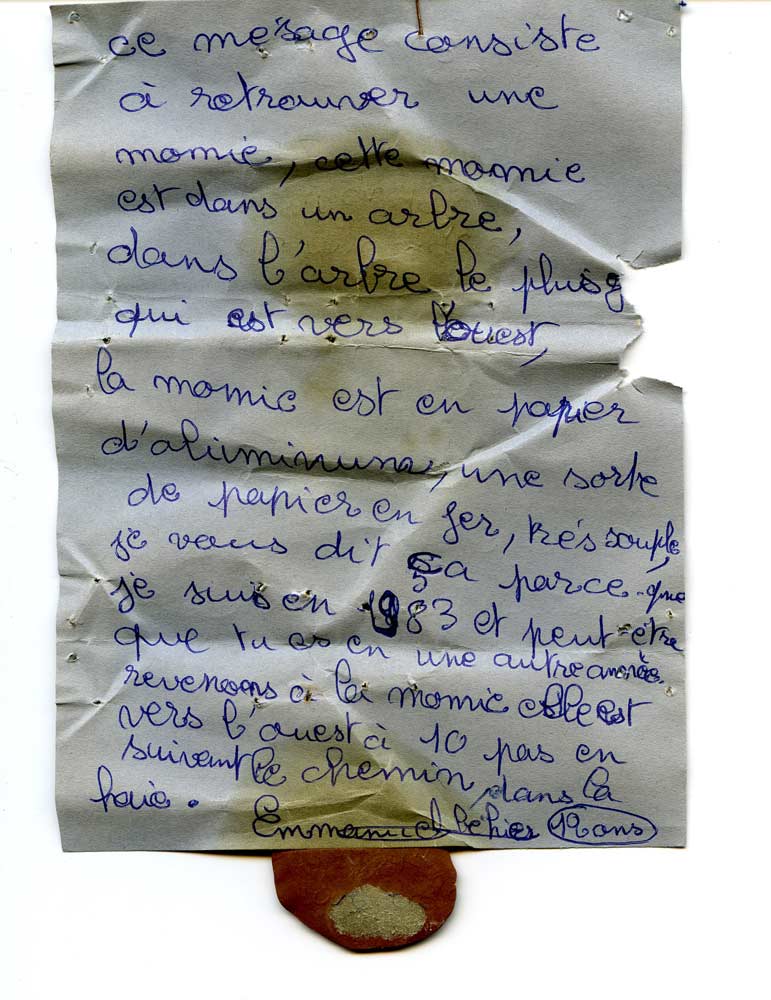 ce mesage consiste
à retrouver une
momie, cette momie
est dans un arbre,
dans l'arbre le plus g
qui est vers l'ouest,
la momie est en papier
d'aluminium, une sorte
de papier en fer, très souple,
je vous dit ça parce-que
je suis en 1983 et peut-être
que tu es en une autre année.
revenons à la momie elle est
vers l'ouest à 10 pas en
suivant le chemin, dans la
haie.
Emmanuel 12 ans